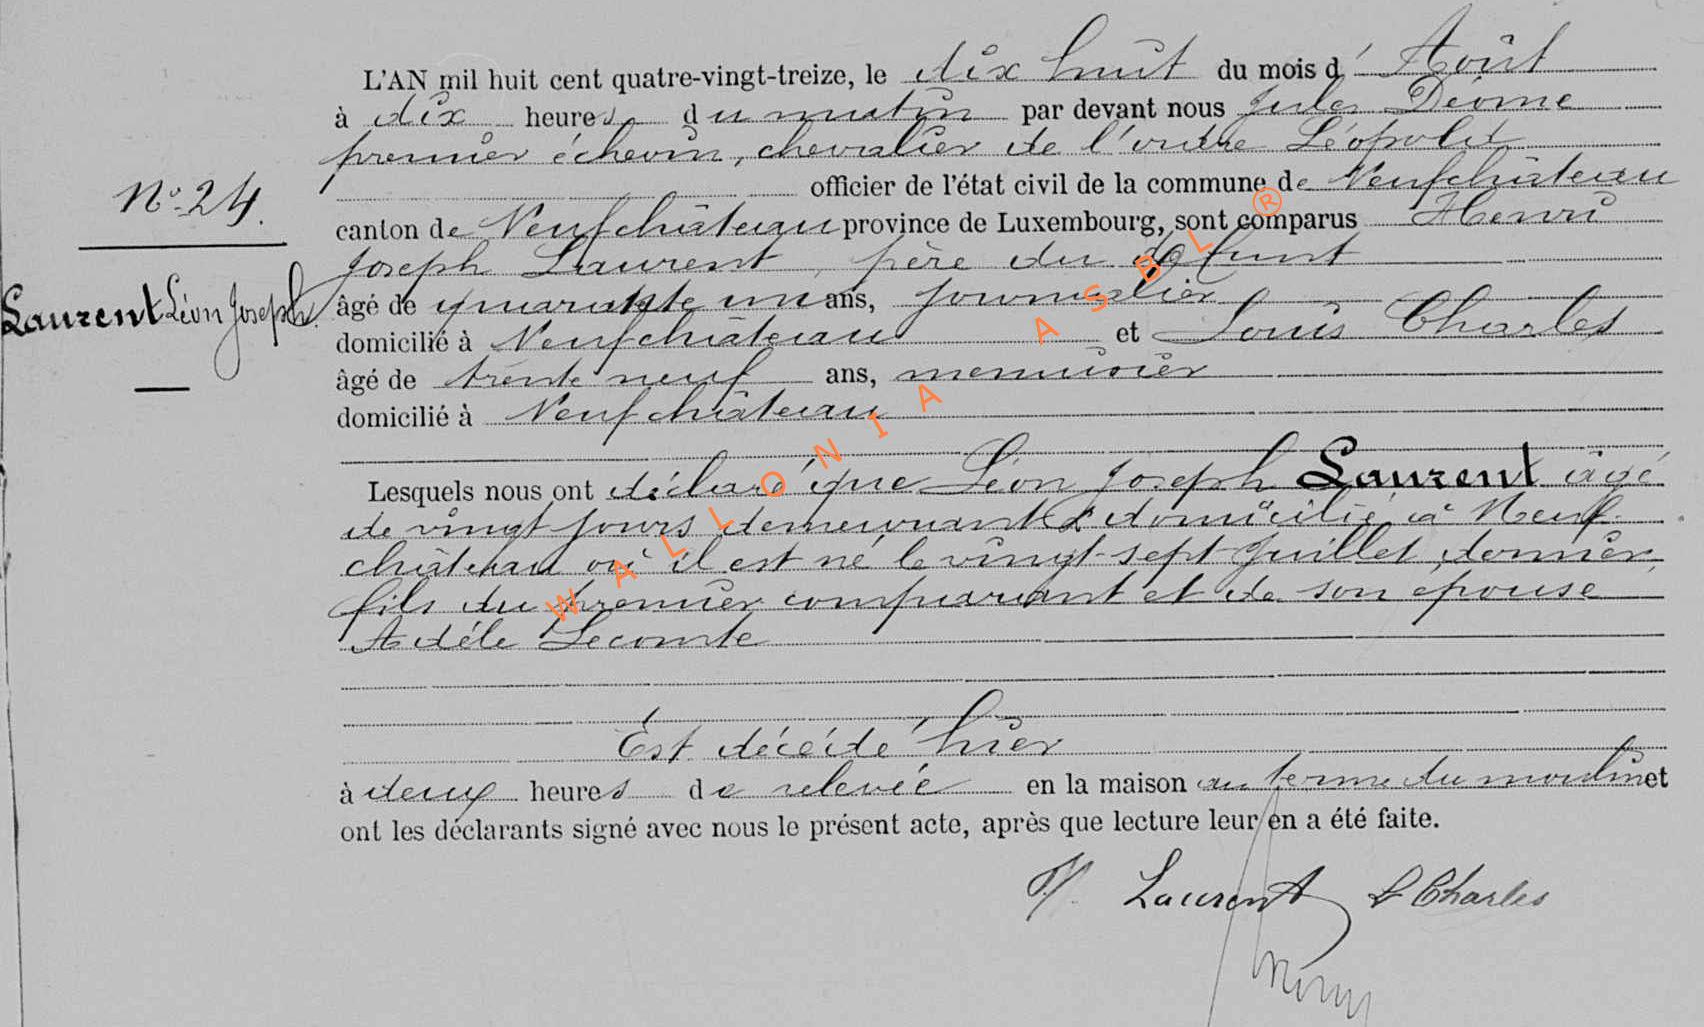 L'AN mil huit cent quatre-vingt-treize, le dix huit du mois d' Août
à dix heures du matin par devant nous Jules Déome
premier échevin, chevalier de l'ordre Léopold
officier de l'état civil de la commune de Neufchâteau
N° 24.
canton de Neufchâteau province de Luxembourg, sont comparus Henri
Joseph Laurent, père du défunt
Laurent Léon Joseph.
âgé de quarante un ans, journalier
domicilié à Neufchâteau et Louis Charles
âgé de trente neuf ans, menuisier
domicilié à Neufchâteau
Lesquels nous ont déclaré que Léon Joseph Laurent âgé
de vingt jours demeurant & domicilié à Neuf-
château où il est né le vingt-sept Juillet dernier,
fils du premier comparant et de son épouse
Adèle Lecomte
Est décédé hier
à deux heures de relevée en la maison au terme du moulin et
ont les déclarants signé avec nous le présent acte, après que lecture leur en a été faite.
H. Laurent L Charles
WALLONIA ASBL ®